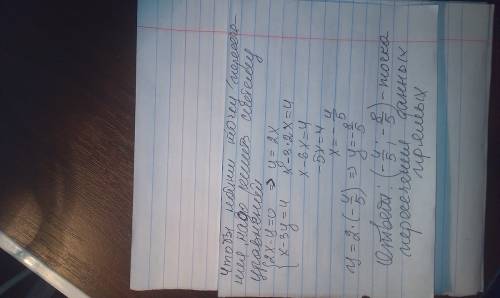 Чтобы найти точку пересече-
ния надо решить систему
уравнений
{2x-y=0 ⇒ y=2x
{x-3y=4 x-3·2x=4
x-6x=4
-5x=4
x=-4/5
y=2·(-4/5) ⇒ y=-8/5
Ответ: (-4/5; -8/5) - точка
пересечения данных
прямых